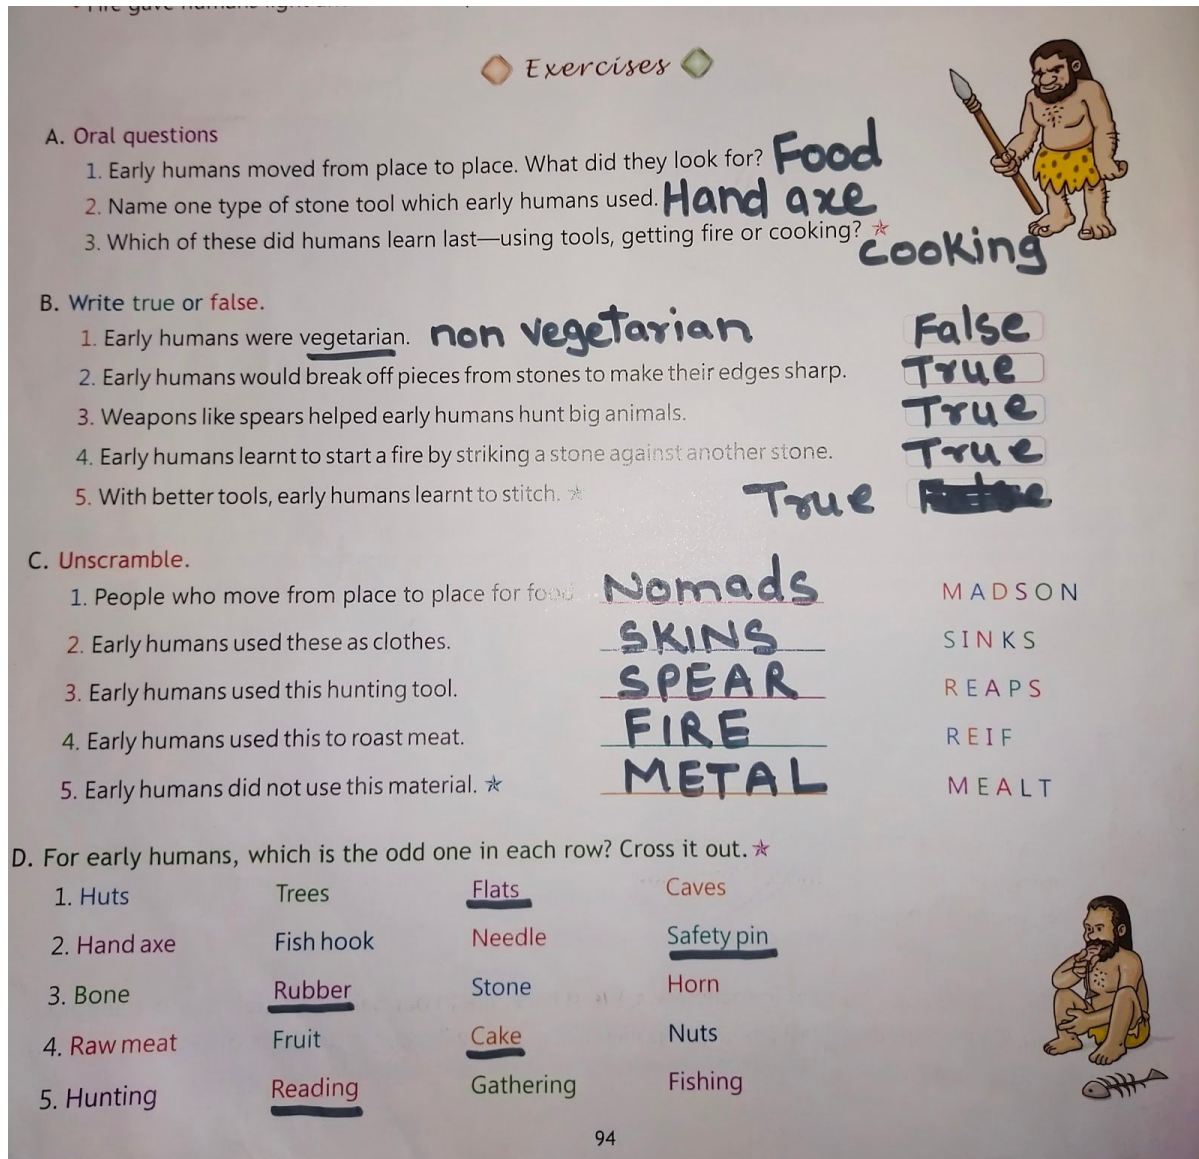 Exercises
A. Oral questions
1. Early humans moved from place to place. What did they look for? Food
2. Name one type of stone tool which early humans used. Hand axe
3. Which of these did humans learn last—using tools, getting fire or cooking? cooking
B. Write true or false.
1. Early humans were vegetarian. non vegetarian False
2. Early humans would break off pieces from stones to make their edges sharp. True
3. Weapons like spears helped early humans hunt big animals. True
4. Early humans learnt to start a fire by striking a stone against another stone. True
5. With better tools, early humans learnt to stitch. True
C. Unscramble.
1. People who move from place to place for food. Nomads MADSON
2. Early humans used these as clothes. SKINS SINKS
3. Early humans used this hunting tool. SPEAR REAPS
4. Early humans used this to roast meat. FIRE REIF
5. Early humans did not use this material. METAL MEALT
D. For early humans, which is the odd one in each row? Cross it out.
1. Huts Trees Flats Caves
2. Hand axe Fish hook Needle Safety pin
3. Bone Rubber Stone Horn
4. Raw meat Fruit Cake Nuts
5. Hunting Reading Gathering Fishing
94